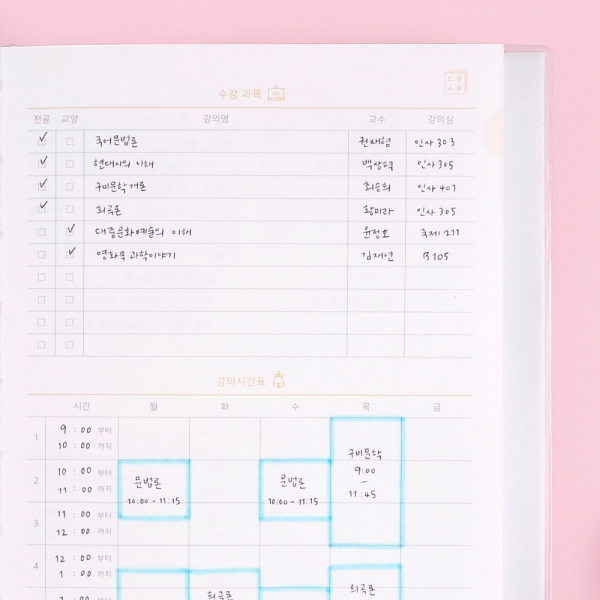 수강 과목
전공 교양 강의명 교수 강의실
국어문법론 권재형 인사 303
현대시의 이해 백상혁 인사 305
구비문학 개론 최승희 인사 401
희곡론 황미라 인사 305
대중문화예술의 이해 윤정호 국제 211
영화속 과학이야기 김재연 B105
강의시간표
시간 월 화 수 목 금
1 9 : 00 부터
10 : 00 까지
구비문학
9:00
-
11:45
2 10 : 00 부터
11 : 00 까지
문법론 문법론
10:00 - 11:15 10:00 - 11:15
3 11 : 00 부터
12 : 00 까지
4 12 : 00 부터
1 : 00 까지
희곡론 희곡론